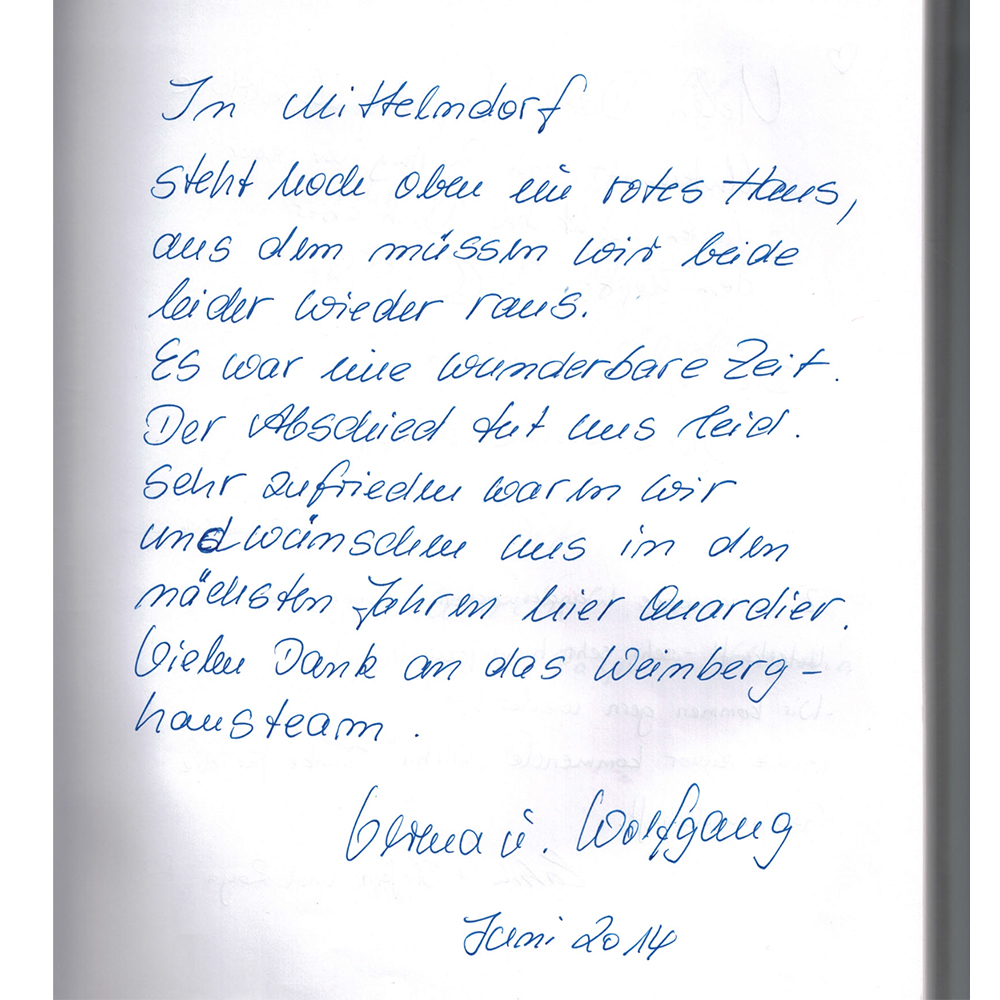 In Mittelndorf
steht hoch oben ein rotes Haus,
aus dem müssen wir beide
leider wieder raus.
Es war eine wunderbare Zeit.
Der Abschied tut uns leid.
Sehr zufrieden waren wir
und wünschen uns in den
nächsten Jahren hier Quardier.
Vielen Dank an das Weinberg-
hausteam.
u. Wolfgang
Juni 2014